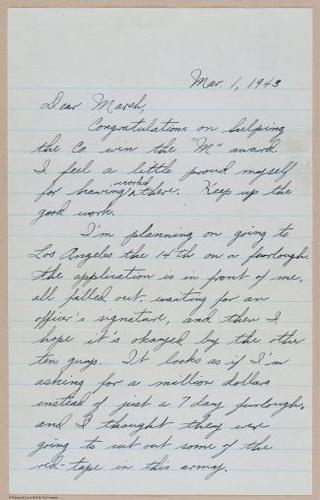 Mar. 1, 1943
Dear Marsh,
Congratulations on helping
the Co win the "M" award.
I feel a little proud myself
for having worked there. Keep up the
good work.
I'm planning on going to
Los Angeles the 14th on a furlough.
The application is in front of me,
all filled out - waiting for an
officer's signature, and then I
hope it's okayed by the other
ten guys. It looks as if I'm
asking for a million dollars
instead of just a 7 day furlough,
and I thought they were
going to cut out some of the
red-tape in this army.